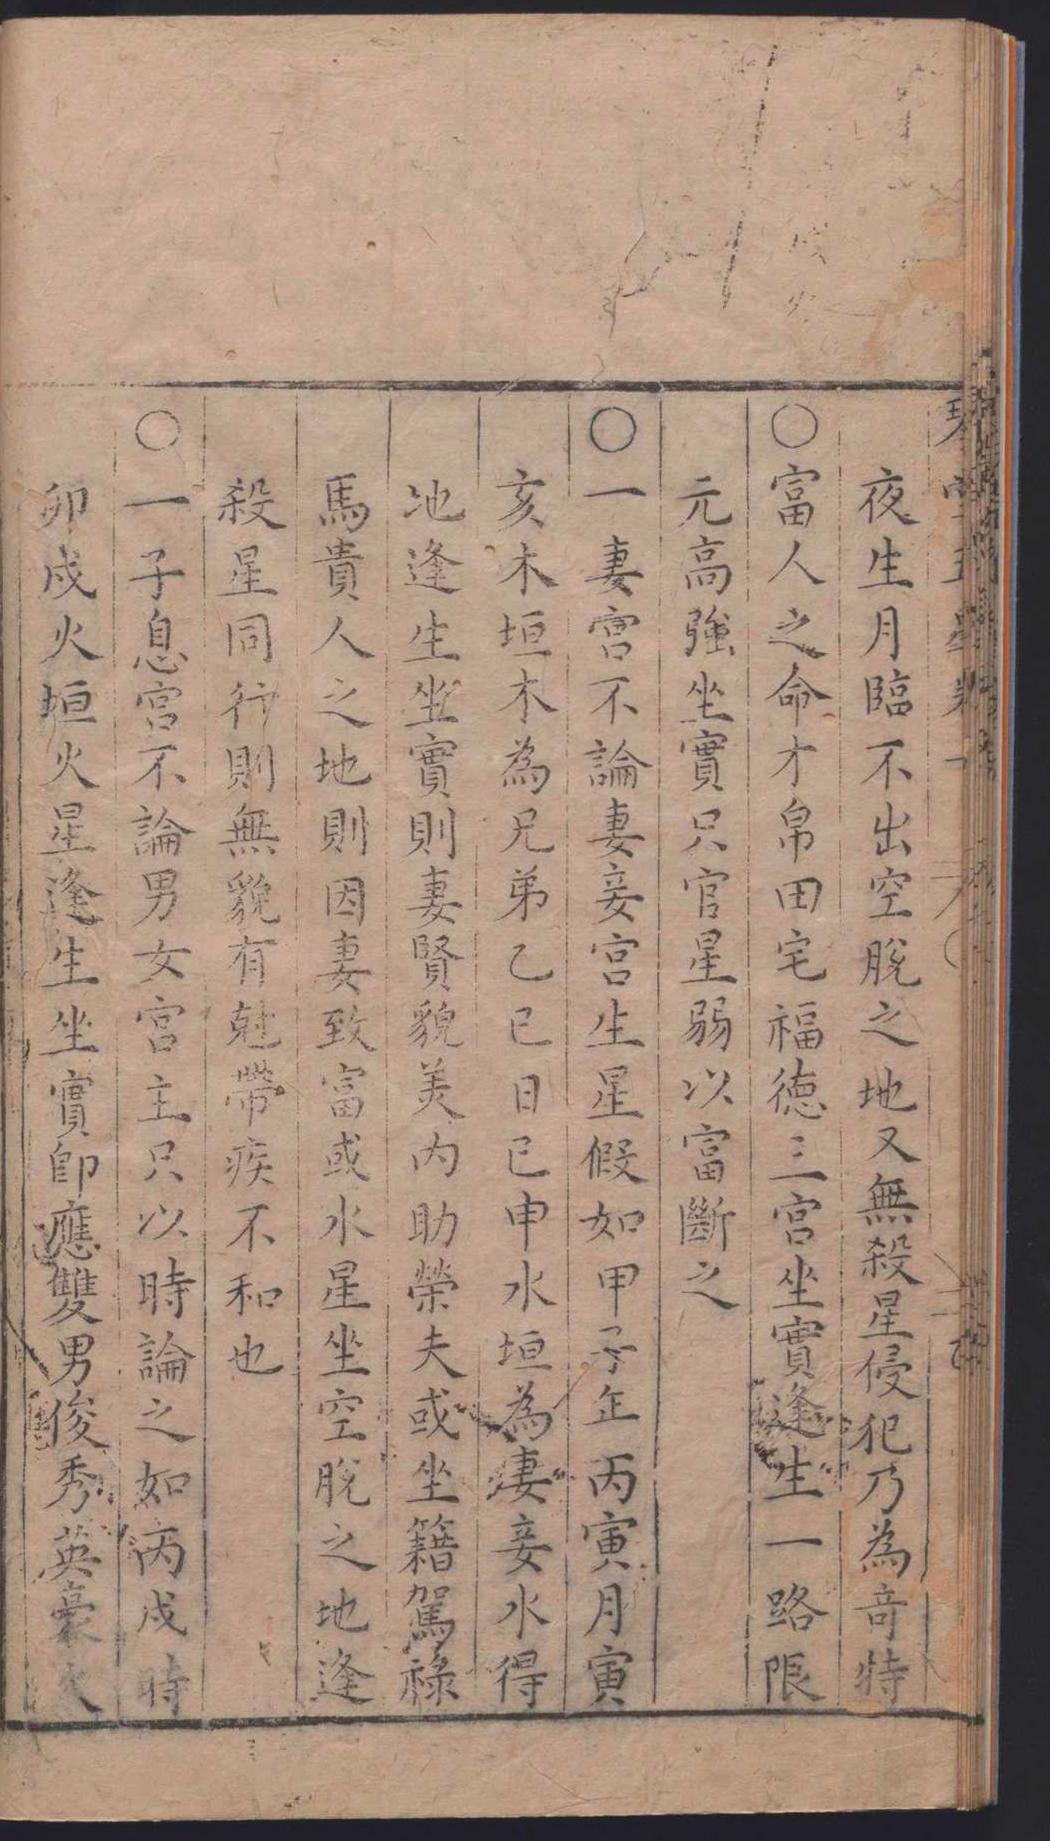 夜生月臨不出空脫之地又無殺星侵犯乃為奇特
○富人之命才帛田宅福德三宮坐實逢生一路限
元高強坐實只官星弱以富斷之
○一妻宮不論妻妾宮生星假如甲子年丙寅月寅
亥木垣木為兄弟乙巳日巳申水垣為妻妾水得
地逢生坐實則妻賢貌美內助榮夫或坐籍駕祿
馬貴人之地則因妻致富或水星坐空脫之地逢
殺星同行則無貌有尅帶疾不和也
○一子息宮不論男女宮主只以時論之如丙戌時
卯戌火垣火星逢生坐實即應雙男俊秀英豪火